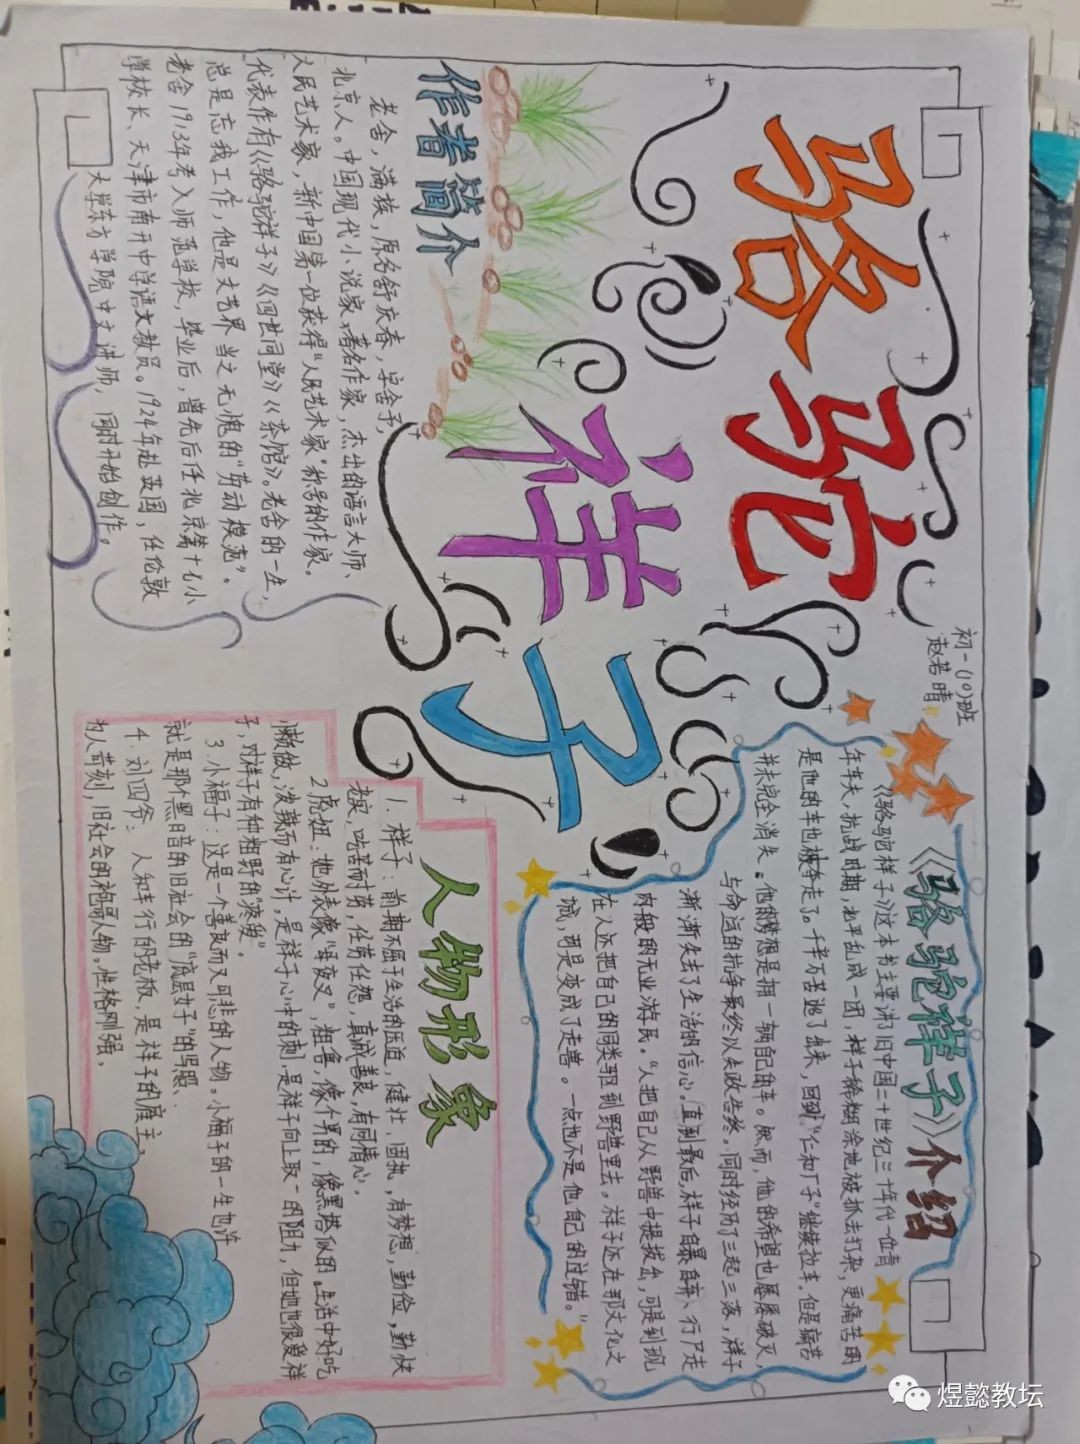 骆驼
祥子
初一(10)班
赵若晴
作者简介
老舍，满族，原名舒庆春，字舍予，
北京人。中国现代小说家、著名作家，杰出的语言大师、
人民艺术家，新中国第一位获得“人民艺术家”称号的作家。
代表作有《骆驼祥子》《四世同堂》《茶馆》。老舍的一生，
总是忘我工作，他是文艺界当之无愧的“劳动模范”。
老舍1913年考入师范学校，毕业后，曾先后任北京第十七小
学校长、天津市南开中学语文教员。1924年赴英国，任伦敦
大学东方学院中文讲师，同时开始创作。
《骆驼祥子》介绍
《骆驼祥子》这本书主要讲了旧中国二十世纪三十年代一位青
年车夫，抗战时期，北平乱成一团，祥子稀糊涂地被抓去打杂，更痛苦的
是他的车也被夺走了。千辛万苦逃了出来，回到“仁和厂子”继续拉车。但是痛苦
并未完全消失。他的梦想是拥一辆自己的车。然而，他的希望也屡屡破灭，
与命运的抗争最终以失败告终。同时经历了三起三落，祥子
渐渐失去了生活的信心。直到最后，祥子自暴自弃、行尸走
肉般的无业游民。“人把自己从野兽中提拔出，可是到现
在人还把自己的同类驱到野兽里去。祥子还在那文化之
城，可是变成了走兽。一点也不是他自己的过错。”
人物形象
1. 祥子：前期不屈于生活的压迫，健壮，固执，有梦想，勤俭，勤快
老实，吃苦耐劳，任劳任怨，真诚善良，有同情心。
2. 虎妞：她外表像“母夜叉”，粗鲁，像个男的，像黑塔似的。生活中好吃
懒做，泼辣而有心计，是祥子心中的刺，是祥子向上取一的阻力，但她也很爱祥
子，对祥子有种粗野的“疼爱”。
3. 小福子：这是一个善良而又可悲的人物。小福子的一生也许
就是那个黑暗的旧社会的“底层女子”的写照。
4. 刘四爷：人和车行的老板，是祥子的雇主，
为人苛刻，旧社会的袍哥人物。性格刚强。
煜懿教坛